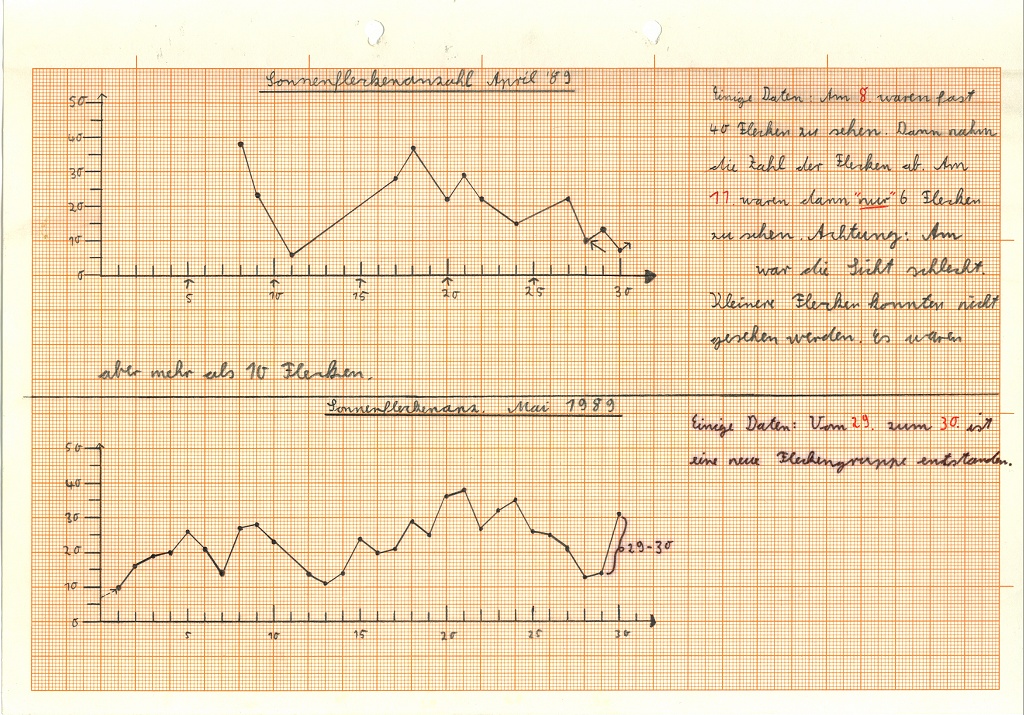 Sonnenfleckenanzahl April '89
50
40
30
20
10
0
5 10 15 20 25 30
Einige Daten: Am 8. waren fast
40 Flecken zu sehen. Dann nahm
die Zahl der Flecken ab. Am
11. waren dann "nur" 6 Flecken
zu sehen. Achtung: Am
war die Sicht schlecht.
Kleinere Flecken konnten nicht
gesehen werden. Es waren
aber mehr als 10 Flecken.
Sonnenfleckenanz. Mai 1989
50
40
30
20
10
0
29-30
5 10 15 20 25 30
Einige Daten: Vom 29. zum 30. ist
eine neue Fleckengruppe entstanden.